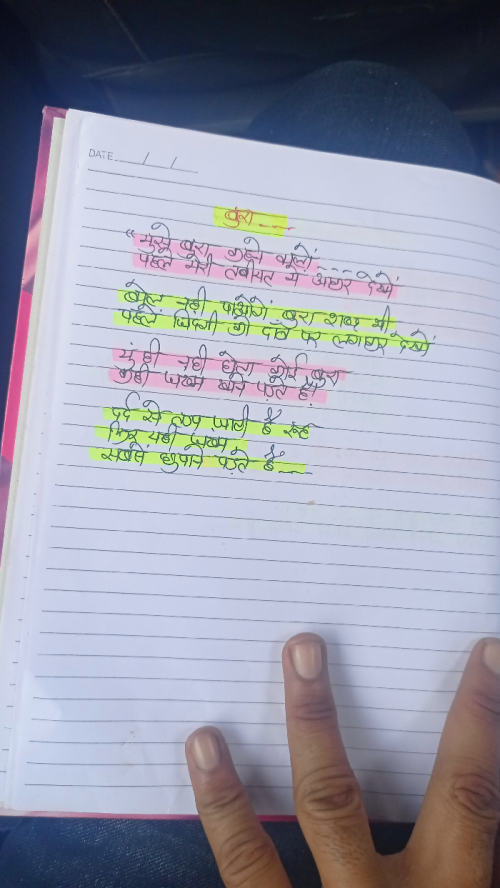 DATE __/__/__
बुरा ----
"मुझे बुरा कहने वालों ----
पहले मेरी तबीयत में आकर देखो
बोल नहीं पाओगे बुरा शब्द भी
पहले जिंदगी को दाँव पर लगाकर देखो
यूं ही नहीं होता कोई बुरा
कही जख्म खाने पड़ते हैं
दर्द से तप जाती है रूह
फिर यही जख्म
सबसे छुपाने पड़ते हैं ----